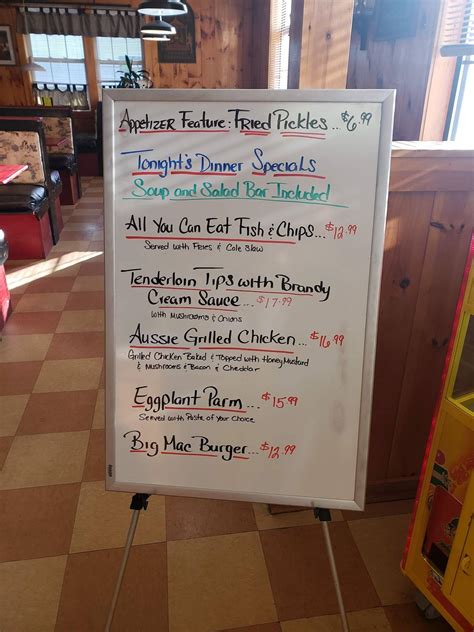 Appetizer Feature: Fried Pickles... $6.99
Tonight's Dinner Specials
Soup and Salad Bar Included
All You Can Eat Fish & Chips... $12.99
Served with Fries & Cole Slaw
Tenderloin Tips with Brandy
Cream Sauce... $17.99
with Mushrooms & Onions
Aussie Grilled Chicken... $16.99
Grilled Chicken Baked & Topped with Honey Mustard
& Mushrooms & Bacon & Cheddar
Eggplant Parm... $15.99
Served with Pasta of Your Choice
Big Mac Burger... $12.99